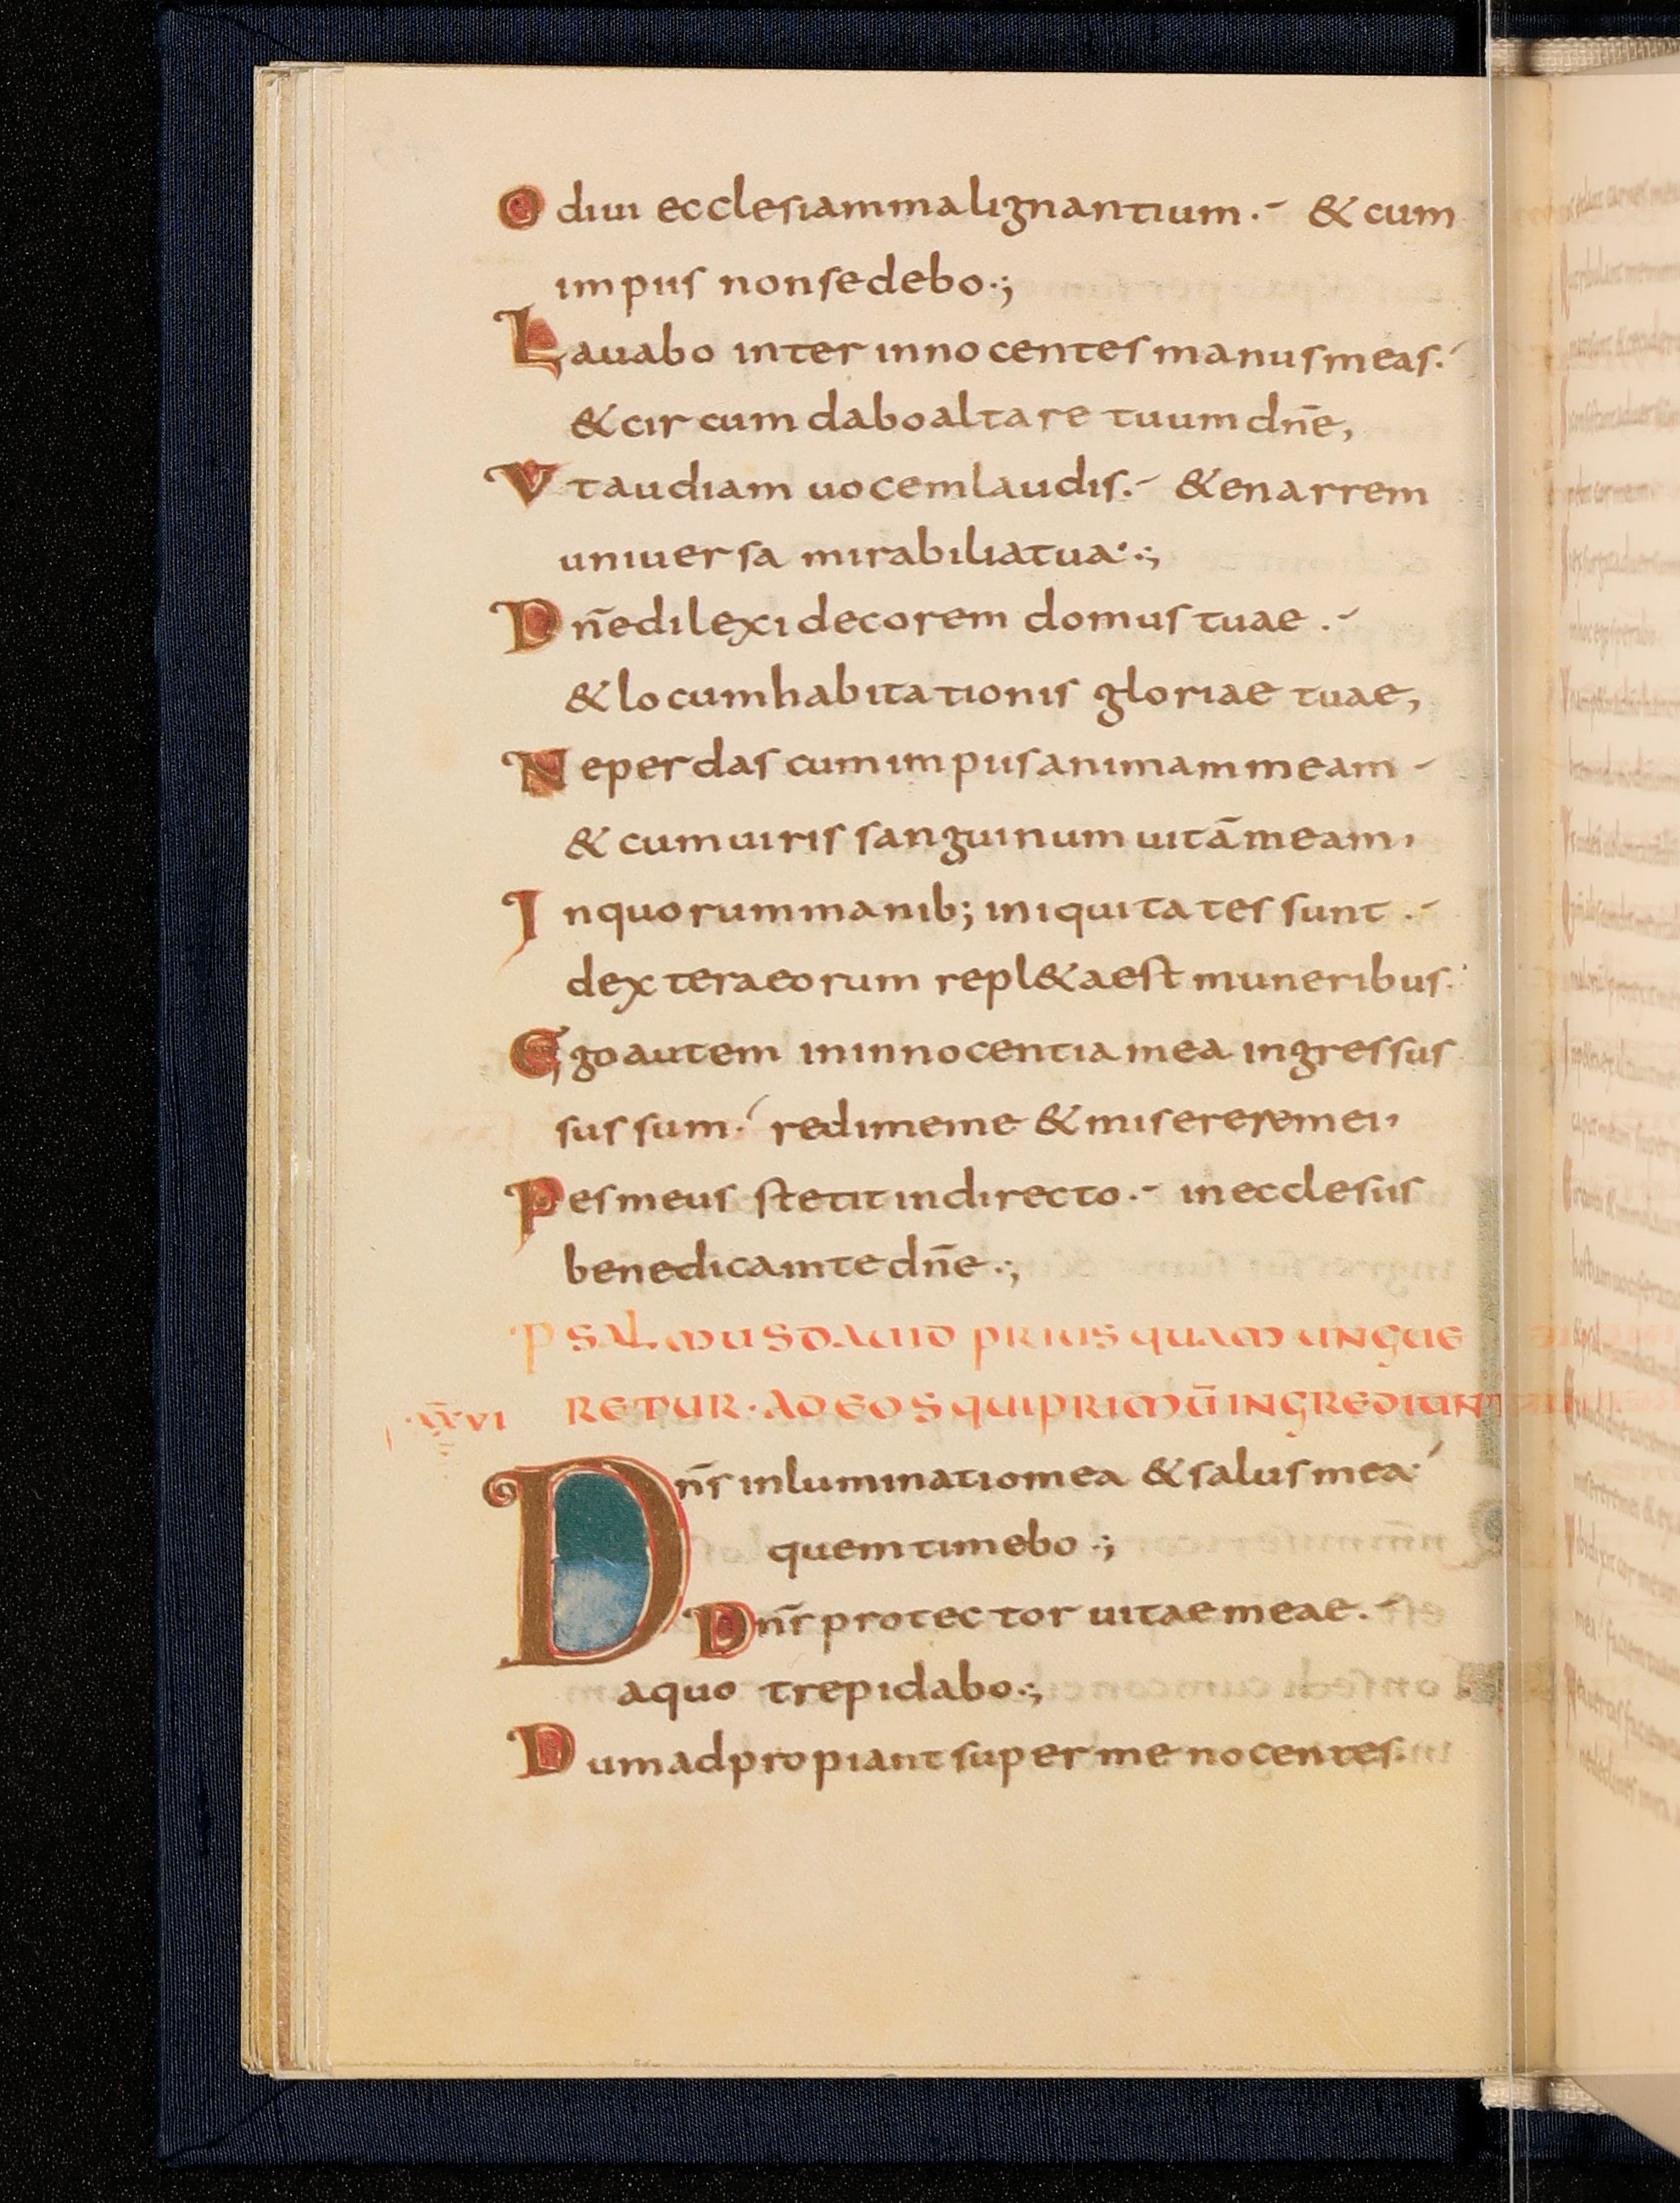 Odiui ecclesiam malignantium.- & cum
impiis non sedebo.;
Lauabo inter innocentes manus meas.
& circumdabo altare tuum dn̄e,
Vt audiam uocem laudis.- & enarrem
uniuersa mirabilia tua.;
Dn̄e dilexi decorem domus tuae .-
& locum habitationis gloriae tuae,
Ne perdas cum impiis animam meam -
& cum uiris sanguinum uitā meam,
In quorum manib; iniquitates sunt .-
dextera eorum repl&a est muneribus.
Ego autem in innocentia mea ingressus
sus sum. redime me & miserere mei,
Pes meus stetit in directo.- in ecclesiis
benedicam te dn̄e.;
PSALMUS DAUID PRIUS QUAM UNGUE
RETUR · AD EOS QUI PRIMŪ INGREDIUNT
XXVI
Dn̄s inluminatio mea & salus mea
quem timebo .;
Dn̄s protector uitae meae.-
a quo trepidabo.;
Dum adpropiant super me nocentes.